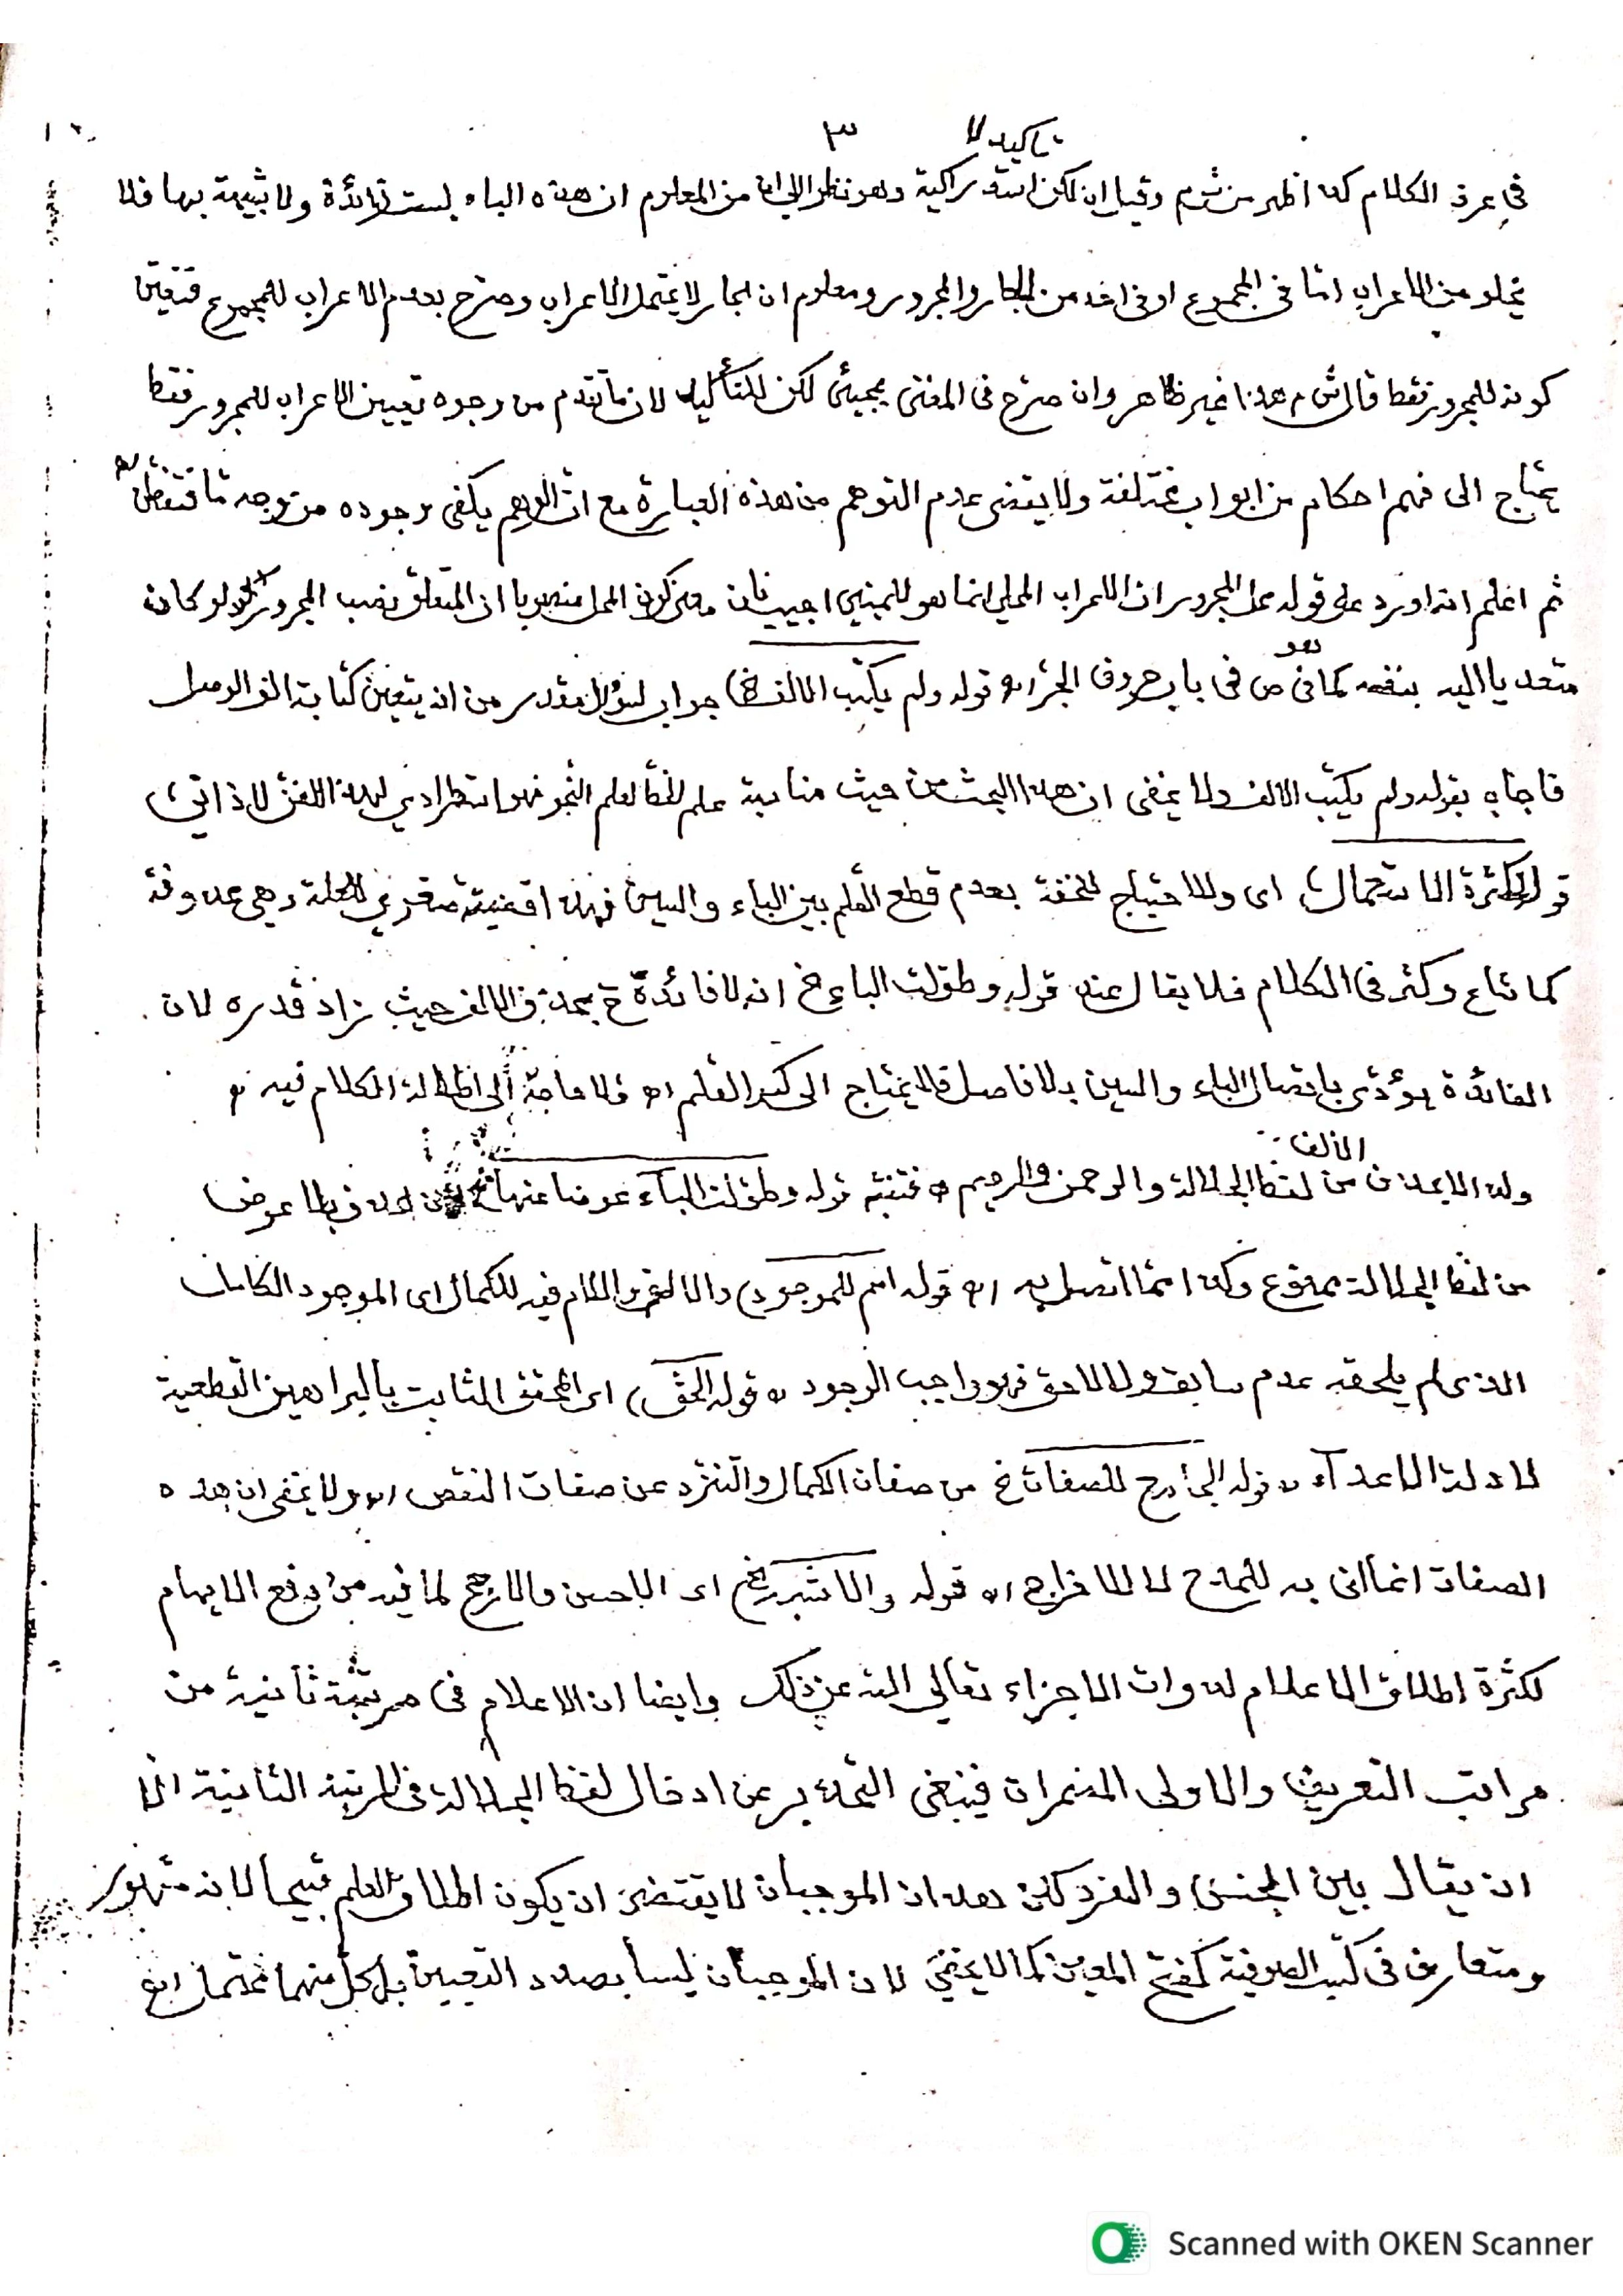 ٣
تاكيد لا
في عرف الكلام كذا ظهر من ش م وقيل ان لكن استدراكية وهو نظر الى ان من المعلوم ان هذه الباء ليست زائدة ولا شبيهة بها فلا
يخلو من الاعراب اما في المجموع او في احد من الجار والمجرور ومعلوم ان الجار لا يحتمل الاعراب وصرح بعدم الاعراب للمجموع فتعين
كونه للمجرور فقط قال ش م هذا غير ظاهر وان صرح في المغني بمجيئ لكن للتأكيد لان ما تقدم من وجوه تعيين الاعراب للمجرور فقط
يحتاج الى فهم احكام من ابواب مختلفة ولا يقتضى عدم التوهم من هذه العبارة مع ان الوهم يكفى وجوده من وجه ما فتفطن اه
ثم اعلم انه اورد على قوله محل المجرور ان الاعراب المحلي انما هو للمبني اجيب بان معنى كون المحل منصوبا ان المتعلق نصب المجرور لو كان
هو
متعديا اليه بنفسه كما في ص في باب حروف الجر اه قوله ولم يكتب الالف الخ) جواب لسؤال مقدر من انه يتعين كتابة الف الوصل
فاجاب بقوله ولم يكتب الالف ولا يخفى ان هذا البحث من حيث مناسبة علم الخط لعلم النحو فهو استطرادي لهذا الفن لا ذاتي
قوله لكثرة الاستعمال) اى وللاحتياج للخفة بعدم قطع القلم بين الباء والسين فهذا صغرى للعلة وهي محذوفة
كما شاع وكثر في الكلام فلا يقال عند قوله وطولت الباء الخ انه لا فائدة ح بحذف الالف حيث زاد قدره لان
الفائدة يؤدّى باتصال الباء والسين بلا فاصل فلا يحتاج الى كسر القلم اه فلا حاجة الى اطالة الكلام فيه
الالف
ولذا لا يحذف من لفظ الجلالة والرحمن والرحيم اه فتنبه قوله وطولت الباء عوضا عنها حذف بلا عوض
من لفظ الجلالة ممنوع وكذا مما اتصل به اه قوله اسم للموجود) والالف واللام فيه للكمال اى الموجود الكامل
الذى لم يلحقه عدم سابق ولا لاحق فهو واجب الوجود اه قوله الحق) اى المحقق الثابت بالبراهين القطعية
لا دلة الاعداء اه قوله الجامع للصفات الخ من صفات الكمال والتنزه عن صفات النقص اه ولا يخفى ان هذه
الصفات انما اتى به للمدح لا للاخراج اه قوله والاشهر الخ اى الاحسن والارجح لما فيه من دفع الايهام
لكثرة اطلاق الاعلام لذوات الاجزاء تعالى الله عن ذلك وايضا ان الاعلام في مرتبة ثانية من
مراتب التعريف والاولى المضمرات فينبغى التحذير عن ادخال لفظ الجلالة في المرتبة الثانية الا
ان يقال بين الجنس والفرد لكن هذان الموجبان لا يقتضى ان يكون اطلاق العلم قبيحا لانه مشهور
ومتعارف في كتب الصوفية كفتح المعين كما لا يخفى لان الموجبان ليسا بصدد التعيين بل كل منهما محتمل
Scanned with OKEN Scanner